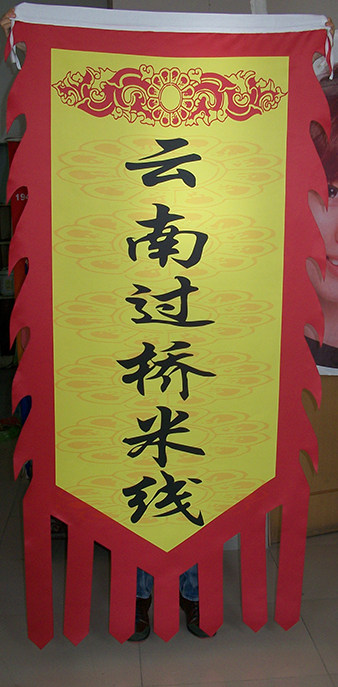 云南过桥米线